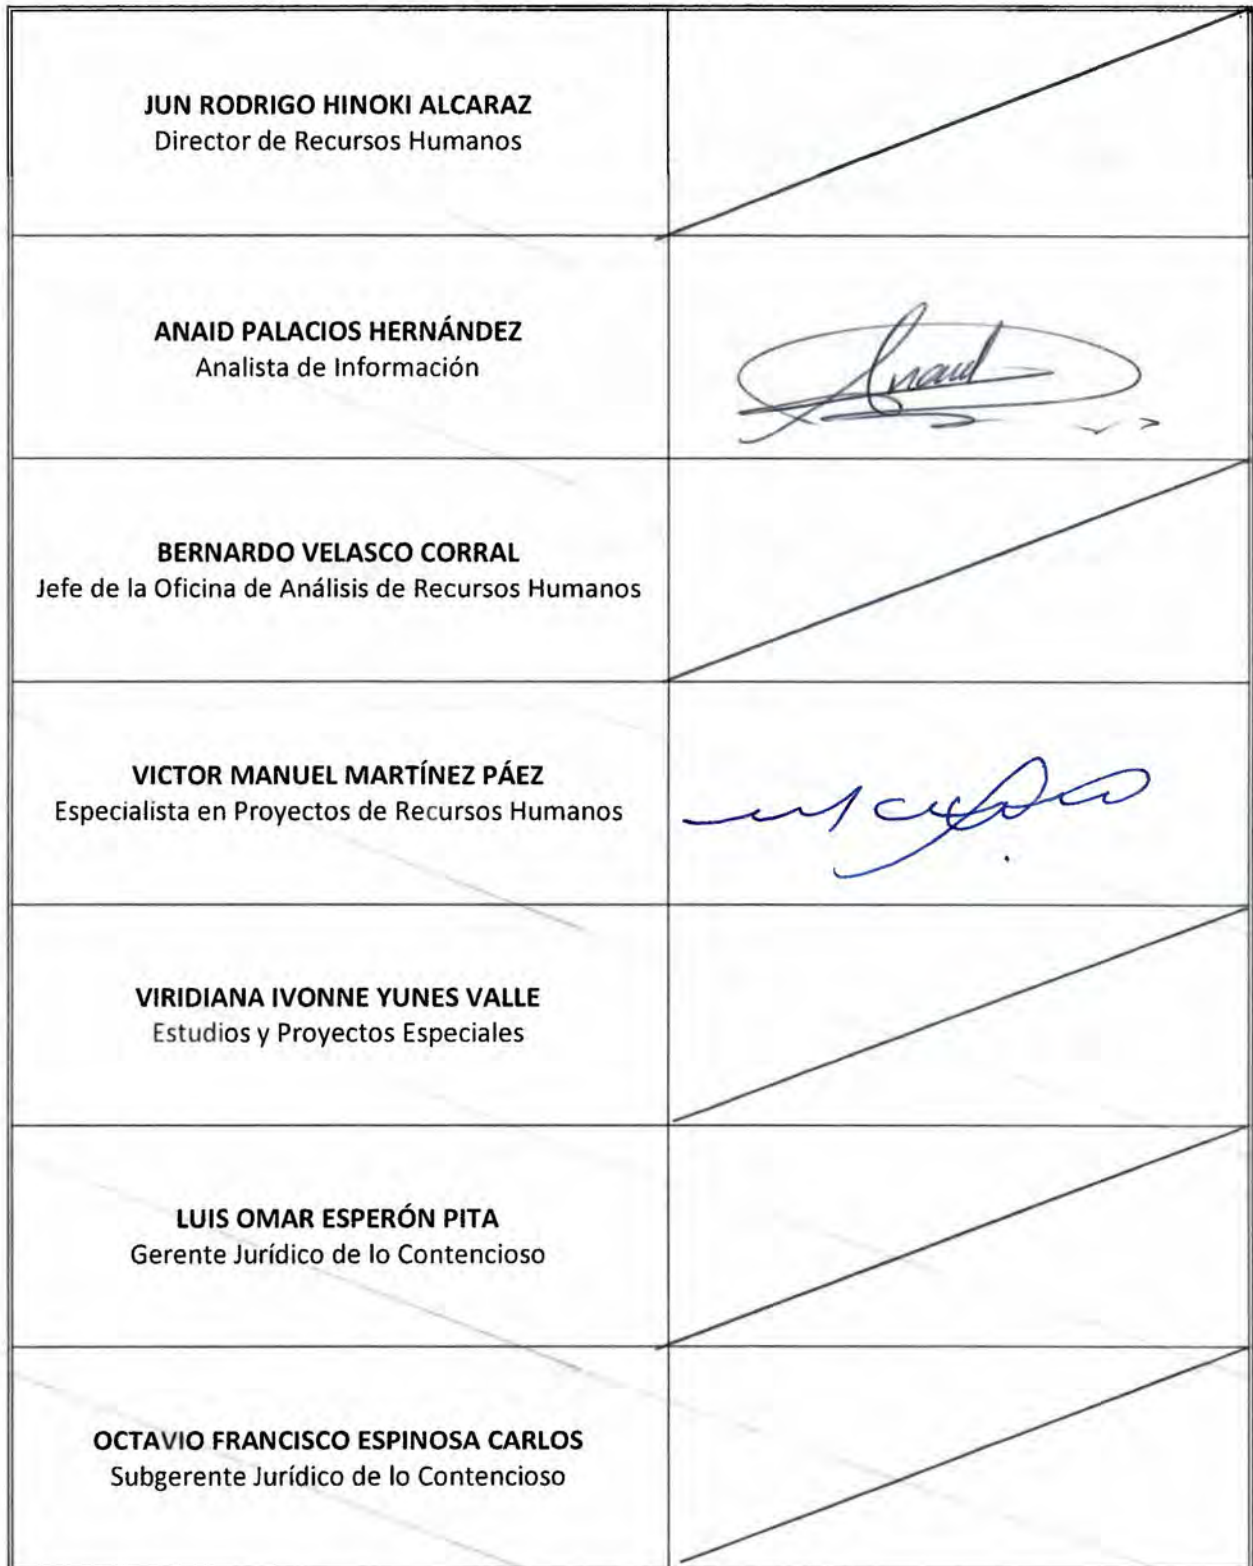 JUN RODRIGO HINOKI ALCARAZ
Director de Recursos Humanos
ANAID PALACIOS HERNÁNDEZ
Analista de Información
Anaid
BERNARDO VELASCO CORRAL
Jefe de la Oficina de Análisis de Recursos Humanos
VICTOR MANUEL MARTÍNEZ PÁEZ
Especialista en Proyectos de Recursos Humanos
VIRIDIANA IVONNE YUNES VALLE
Estudios y Proyectos Especiales
LUIS OMAR ESPERÓN PITA
Gerente Jurídico de lo Contencioso
OCTAVIO FRANCISCO ESPINOSA CARLOS
Subgerente Jurídico de lo Contencioso